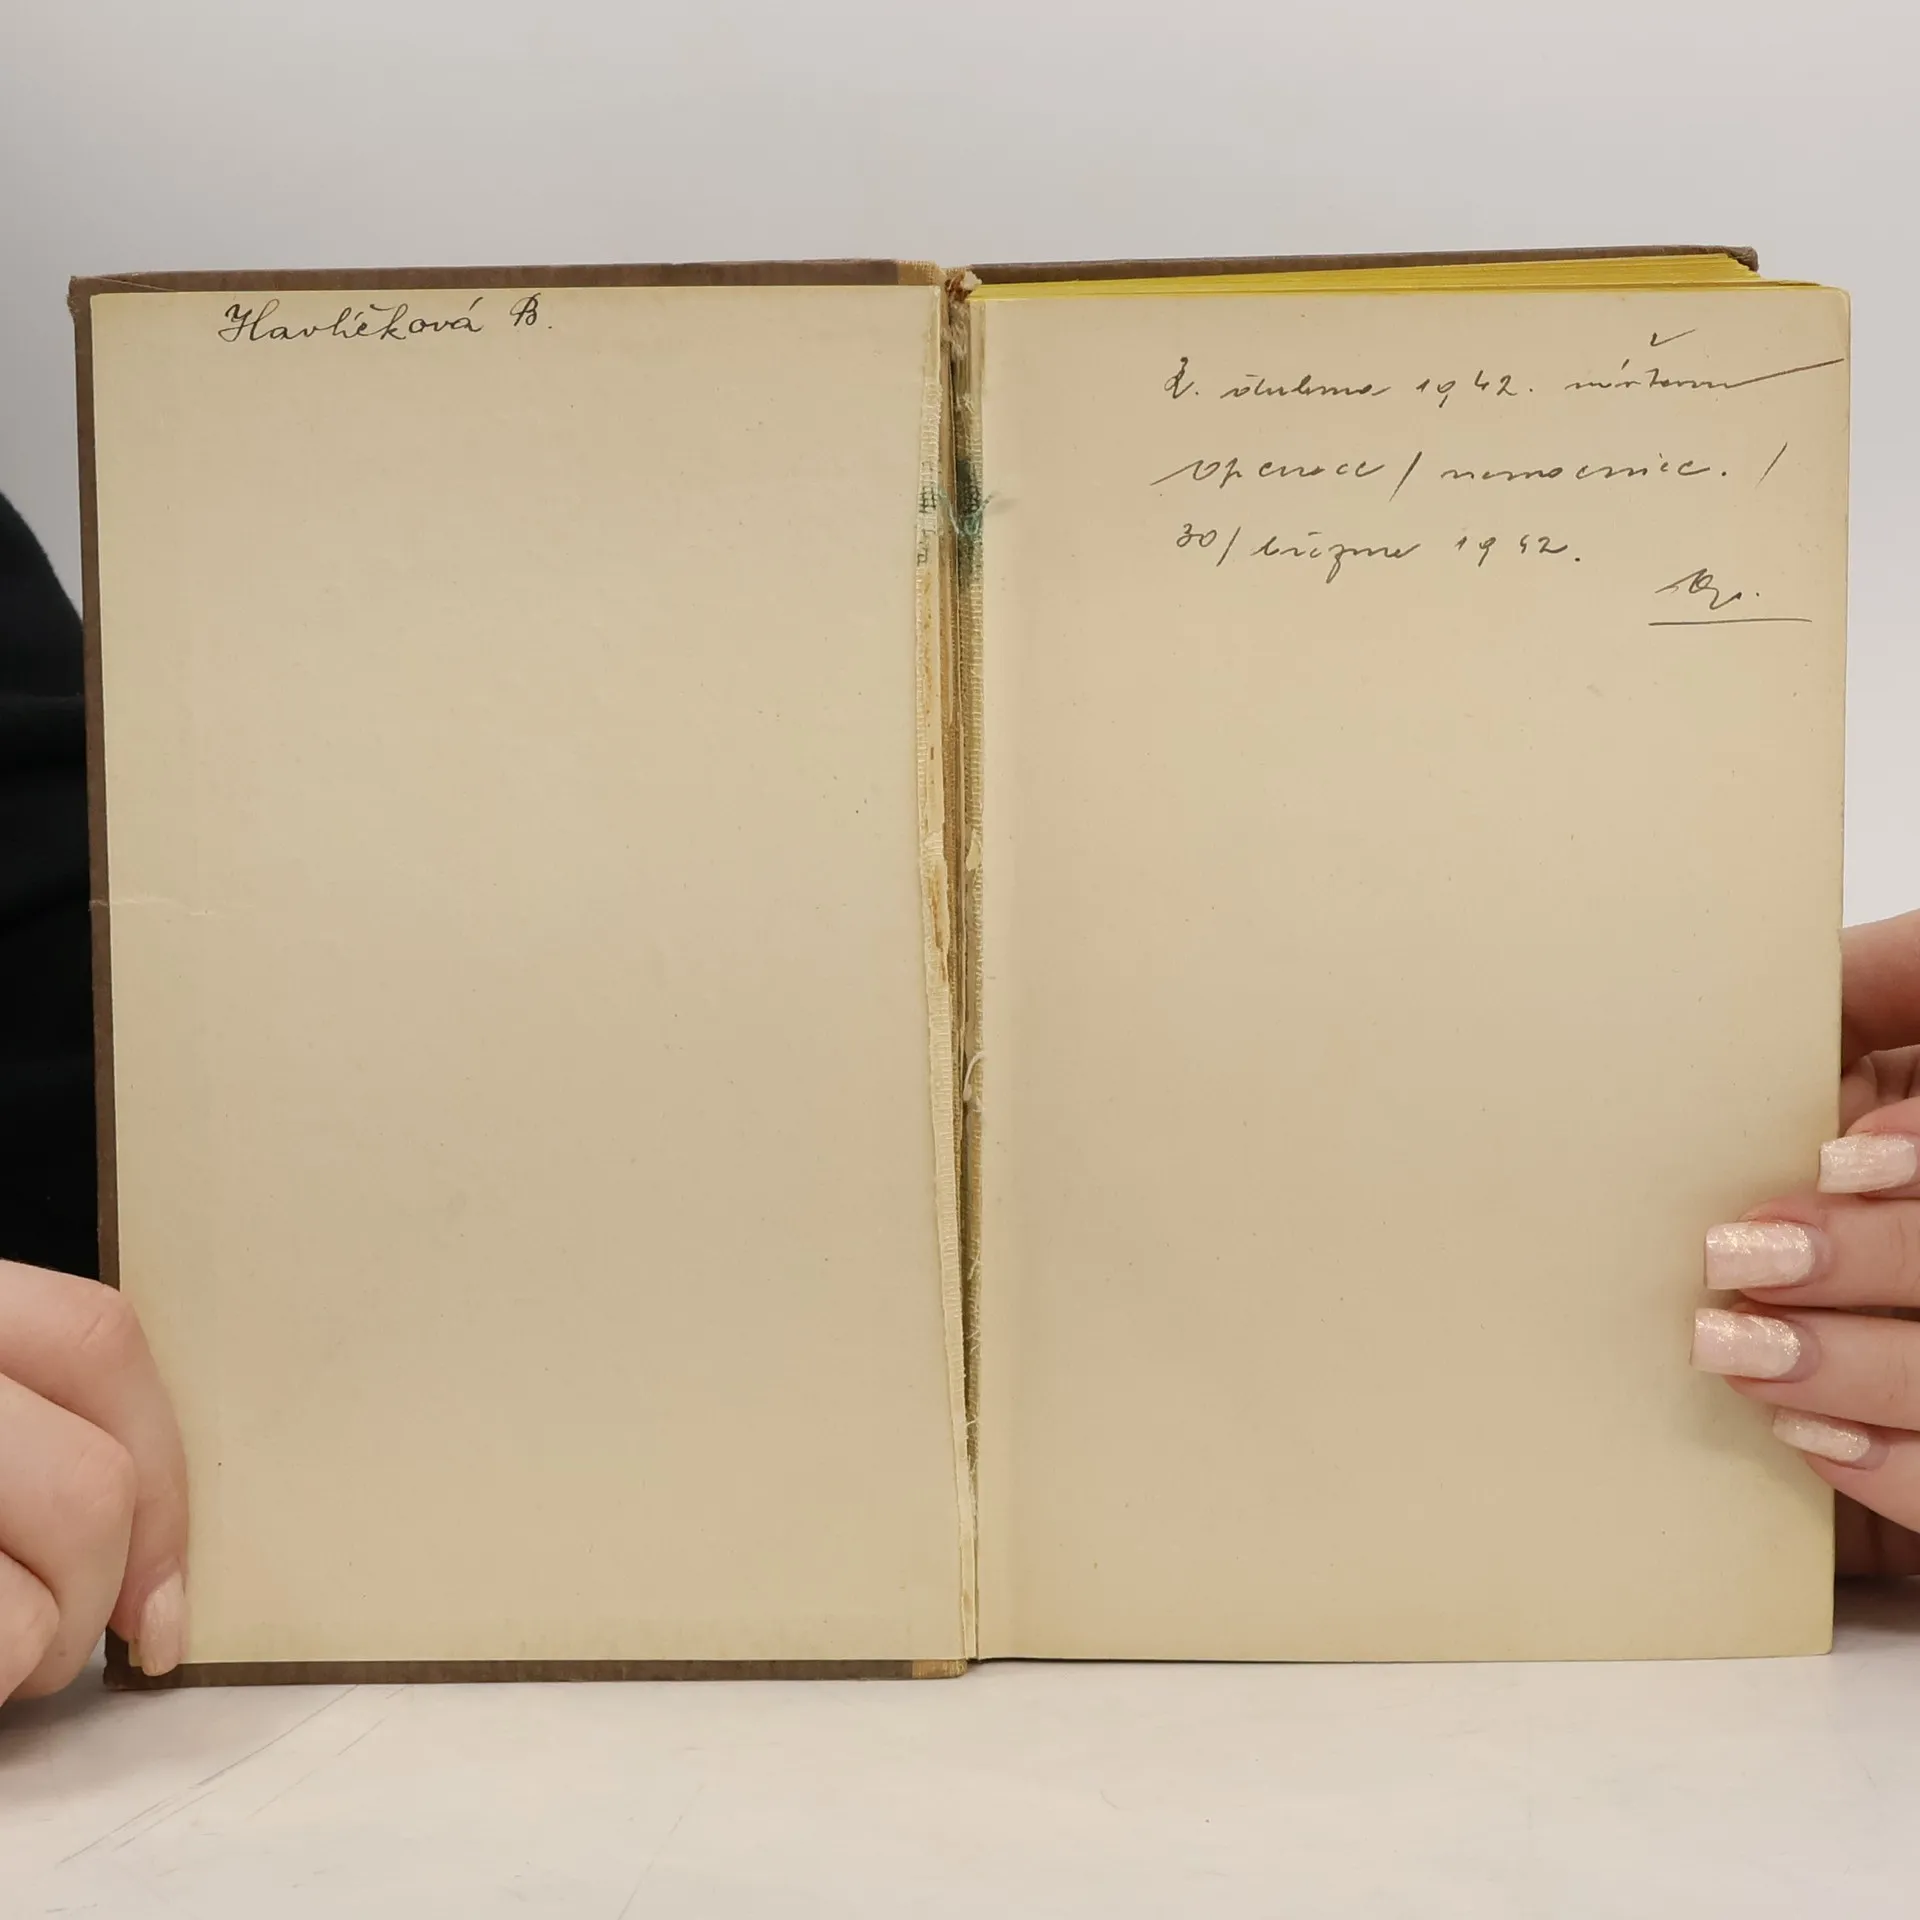 Havlíčková B.
2. dubna 1942.
operace / nemocnice. /
30/ března 1942.
Op.